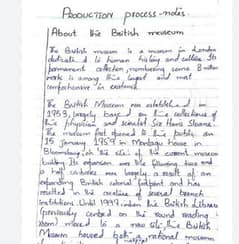 PRODUCTION process-notes
About the British museum
The British museum is a museum in London
dedicated to human history and culture. Its
permanent collection, numbering some 8 million
work is among the largest and most
comprehensive in existence.
The British Museum was established in
1753, largely based on the collections of
the physician and scientist Sir Hans Sloane.
The museum first opened to the public on
15 January 1759 in Montagu house in
Bloomsbury, on the site of the current museum
building. Its expansion over the following two and
a half centuries was largely a result of an
expanding British colonial footprint and has
resulted in the creation of several branch
institutions. Until 1997, when the British Library
(previously centred on the round reading
room) moved to a new site, the British
Museum housed both a national museum